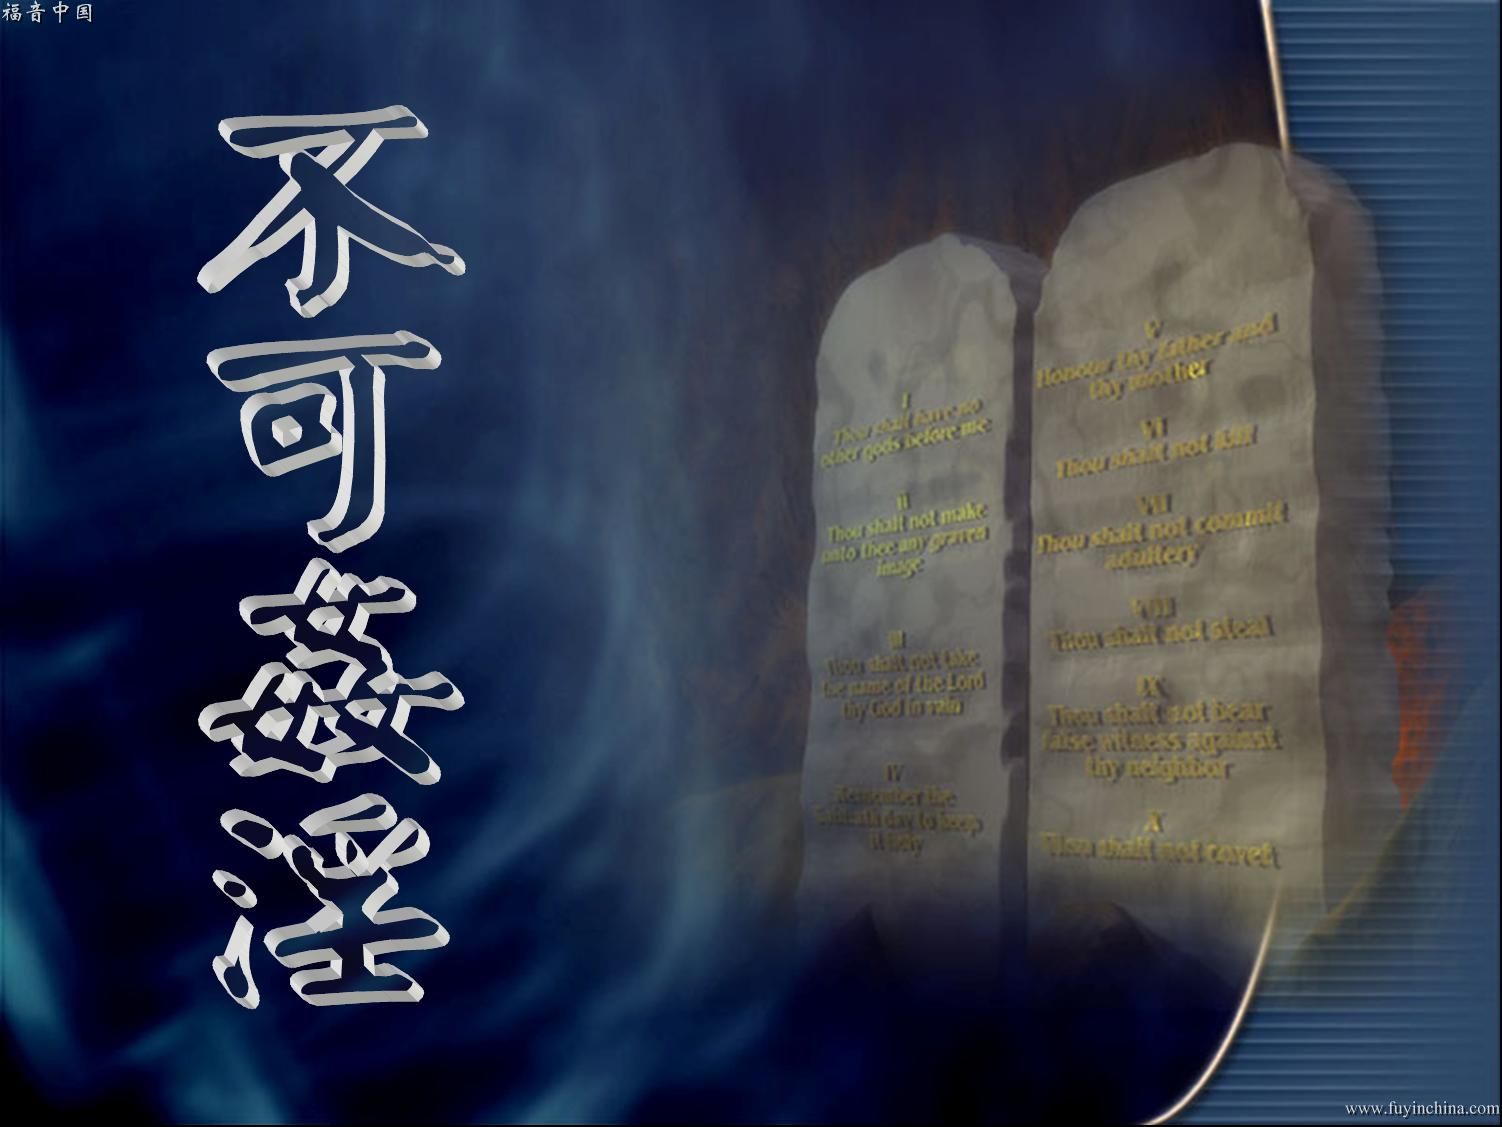 福音中国
不可姦淫
I
Thou shalt have no
other gods before me
II
Thou shalt not make
unto thee any graven
image
III
Thou shalt not take
the name of the Lord
thy God in vain
IV
Remember the
Sabbath day to keep
it holy
V
Honour thy father and
thy mother
VI
Thou shalt not kill
VII
Thou shalt not commit
adultery
VIII
Thou shalt not steal
IX
Thou shalt not bear
false witness against
thy neighbor
X
Thou shalt not covet
www.fuyinchina.com